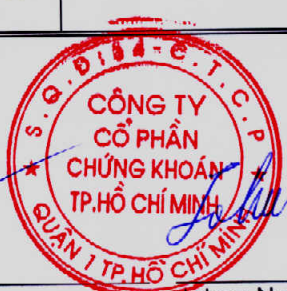 CÔNG TY
CỔ PHẦN
CHỨNG KHOÁN
TP.HỒ CHÍ MINH
QUẬN 1 TP.HỒ CHÍ MINH